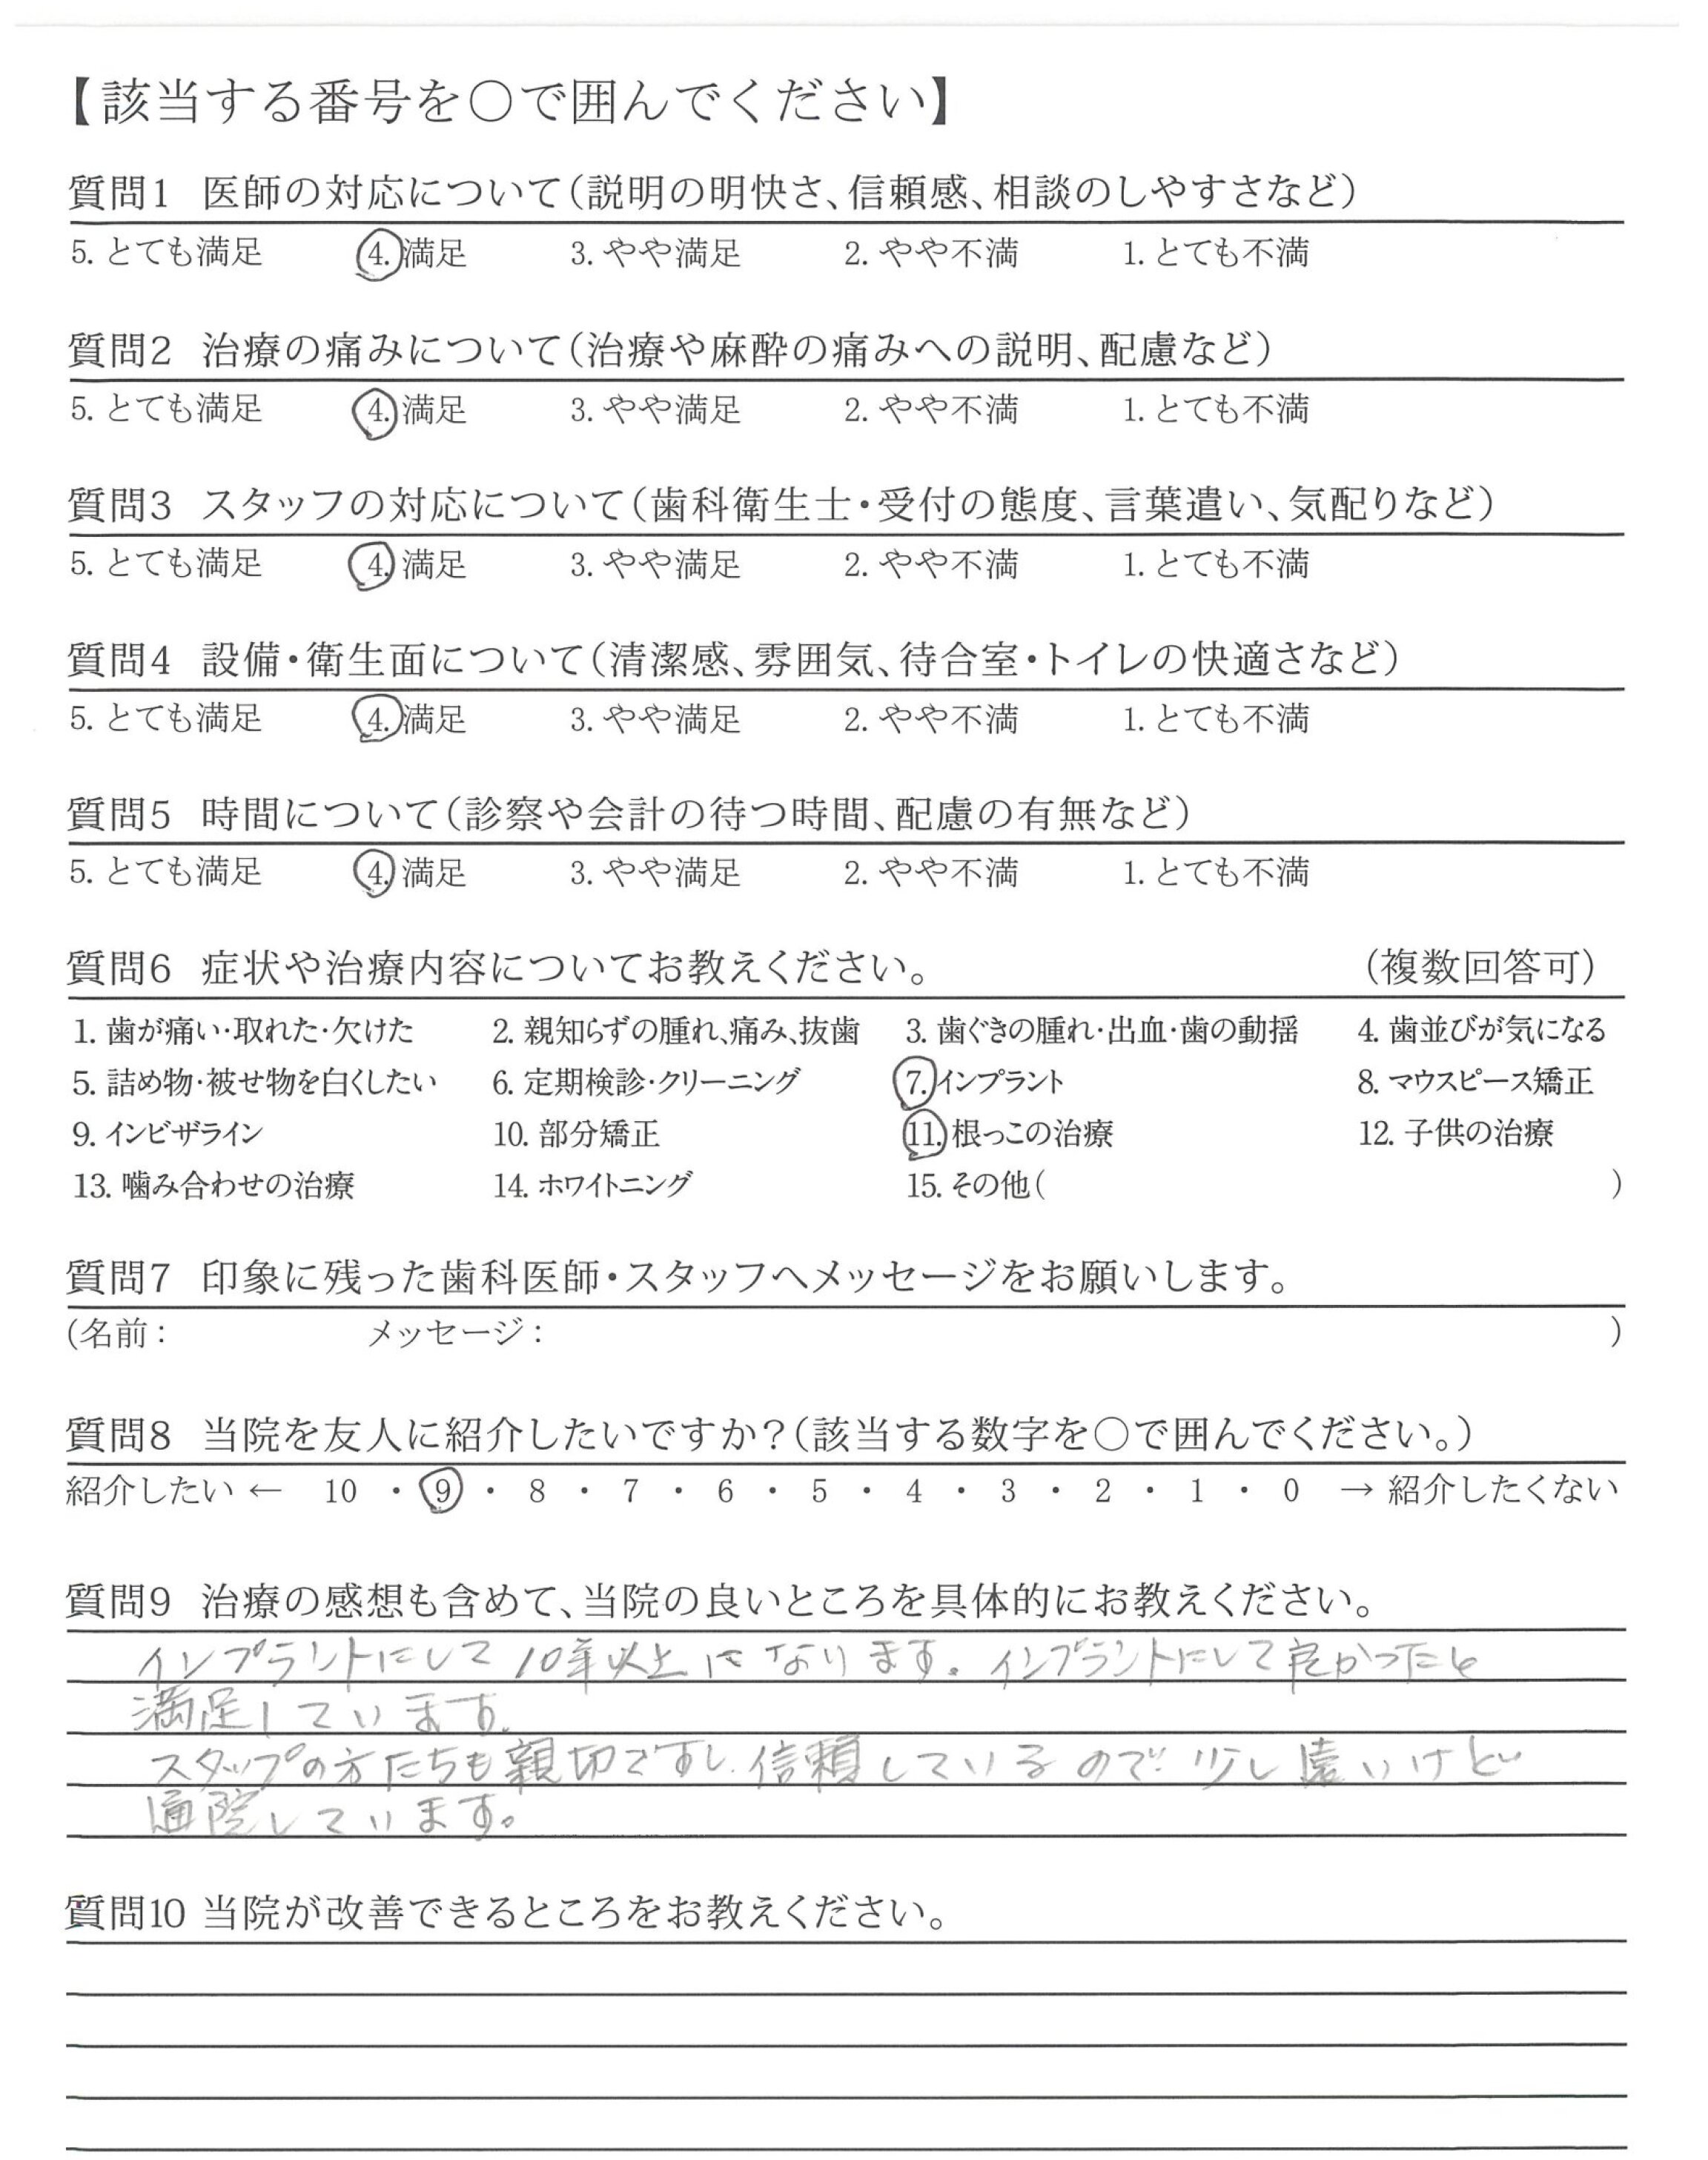 【該当する番号を〇で囲んでください】
質問1 医師の対応について(説明の明快さ、信頼感、相談のしやすさなど)
5. とても満足 4. 満足 3. やや満足 2. やや不満 1. とても不満
質問2 治療の痛みについて(治療や麻酔の痛みへの説明、配慮など)
5. とても満足 4. 満足 3. やや満足 2. やや不満 1. とても不満
質問3 スタッフの対応について(歯科衛生士・受付の態度、言葉遣い、気配りなど)
5. とても満足 4. 満足 3. やや満足 2. やや不満 1. とても不満
質問4 設備・衛生面について(清潔感、雰囲気、待合室・トイレの快適さなど)
5. とても満足 4. 満足 3. やや満足 2. やや不満 1. とても不満
質問5 時間について(診察や会計の待つ時間、配慮の有無など)
5. とても満足 4. 満足 3. やや満足 2. やや不満 1. とても不満
質問6 症状や治療内容についてお教えください。 (複数回答可)
1. 歯が痛い・取れた・欠けた 2. 親知らずの腫れ、痛み、抜歯 3. 歯ぐきの腫れ・出血・歯の動揺 4. 歯並びが気になる
5. 詰め物・被せ物を白くしたい 6. 定期検診・クリーニング 7. インプラント 8. マウスピース矯正
9. インビザライン 10. 部分矯正 11. 根っこの治療 12. 子供の治療
13. 噛み合わせの治療 14. ホワイトニング 15. その他( )
質問7 印象に残った歯科医師・スタッフへメッセージをお願いします。
(名前: メッセージ: )
質問8 当院を友人に紹介したいですか?(該当する数字を〇で囲んでください。)
紹介したい ← 10 ・ 9 ・ 8 ・ 7 ・ 6 ・ 5 ・ 4 ・ 3 ・ 2 ・ 1 ・ 0 → 紹介したくない
質問9 治療の感想も含めて、当院の良いところを具体的にお教えください。
インプラントにして10年以上になります。インプラントにして良かったと
満足しています。
スタッフの方たちも親切ですし、信頼しているので少し遠いけど
通院しています。
質問10 当院が改善できるところをお教えください。